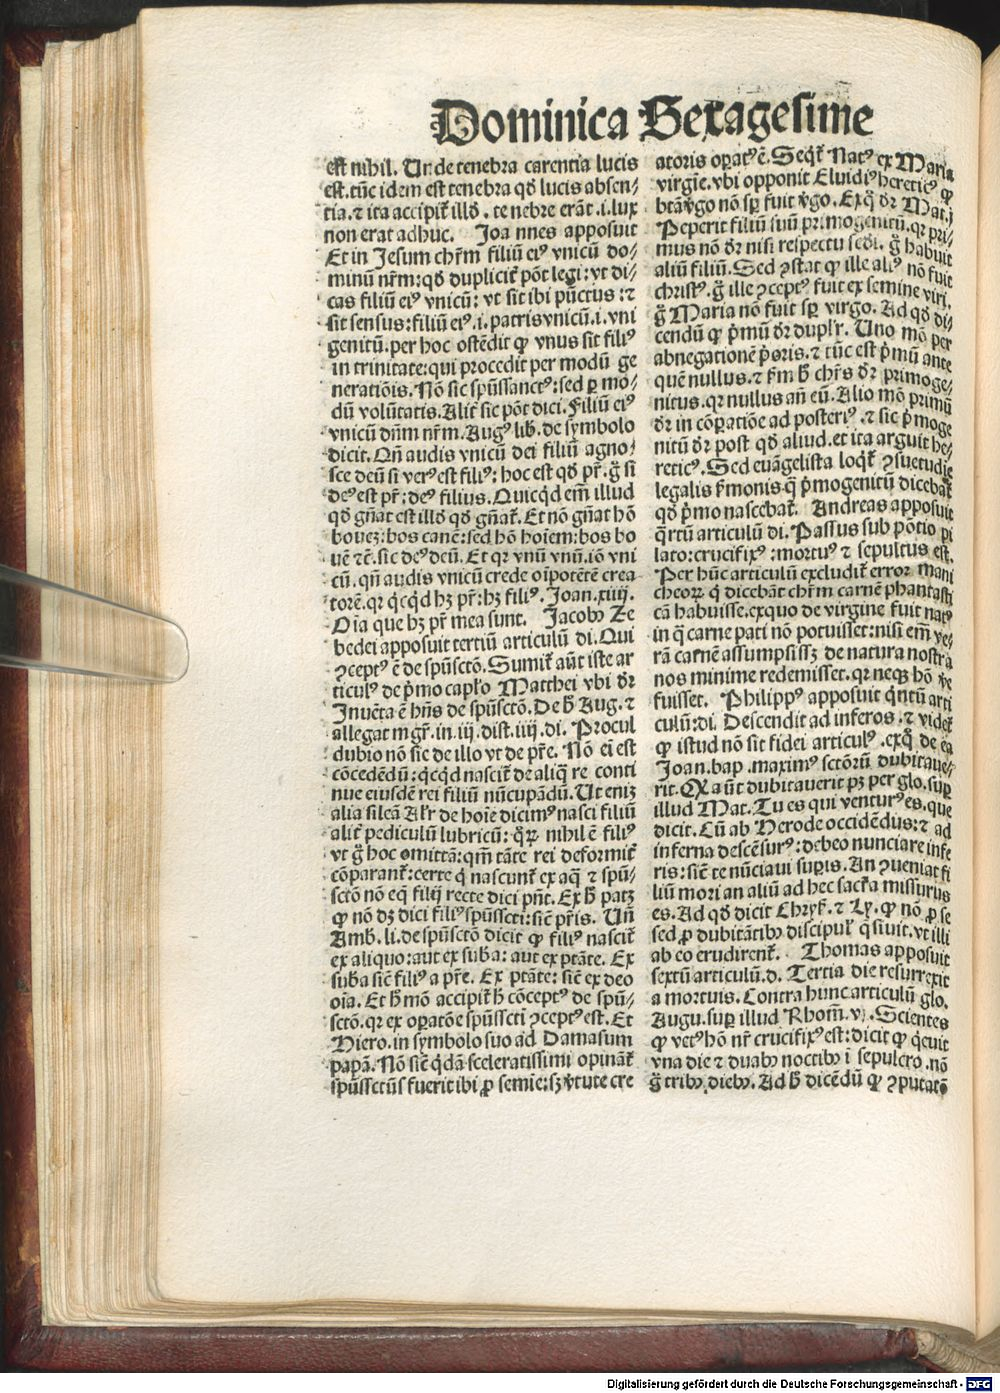 Dominica Sexagesime
est nihil. Un̄ de tenebra carentia lucis
est. tūc idem est tenebra qđ lucis absen-/
tia. ⁊ ita accipit̄ illđ. tenebre erāt .i. lux
non erat adhuc. Joannes apposuit
Et in Jesum chr̄m filiū eiꝰ vnicū do-/
minū nr̄m: qđ duplicit̄ pōt legi: vt di-/
cas filiū eiꝰ vnicū: vt sit ibi pūctus: ⁊
sit sensus: filiū eiꝰ .i. patris vnicū .i. vni
genitū. per hoc ostēdit ꝙ vnus sit filiꝰ
in trinitate: qui procedit per modū ge
neratiōis. Nō sic spūssanctꝰ: sed ꝑ mo-/
dū volūtatis. Alit̄ sic pōt dici. Filiū eiꝰ
vnicū dn̄m nr̄m. Augꝰ lib. de symbolo
dicit. Qn̄ audis vnicū dei filiū agno-/
sce deū si verꝰ est filiꝰ: hoc est qđ pr̄. g̊ si
deꝰ est pr̄: deꝰ filius. Quicqd em̄ illud
qđ gn̄at est illđ qđ gn̄at̄. Et nō gn̄at hō
bouez: bos canē: sed hō hoīem: bos bo
uē ⁊c̄. sic deꝰ deū. Et qr vnū vnū. iō vni
cū. qn̄ audis vnicū crede oīpotētē crea
torē. qr qcqd hz pr̄: hz filiꝰ. Joan. xiiij.
Oīa que hz pr̄ mea sunt. Jacobꝰ Ze
bedei apposuit tertiū articulū di. Qui
ꝯceptꝰ ē de spūsctō. Sumit̄ aūt iste ar
ticulꝰ de pͥmo caplo Matthei vbi dr̄
Inuēta ē hn̄s de spūsctō. De h̄ Aug. ⁊
allegat mgr̄. in .iij. dist. iiij. di. Procul
dubio nō sic de illo vt de pr̄e. Nō ei est
cōcedēdū: qcqd nascit̄ de aliq̄ re conti
nue eiusdē rei filiū nūcupādū. Ut eniz
alia sileā Al̓r de hoīe dicimꝰ nasci filiū
alit̄ pediculū lubricū: q̄ꝝ nihil ē filiꝰ
vt g̊ hoc omittā: qm̄ tāte rei deformit̄
cōparant̄: certe q̄ nascunt̄ ex aq̄ ⁊ spū-/
sctō nō eq̄ filij recte dici pn̄t. Ex h̄ patz
ꝙ nō dz dici filiꝰ spūsscti: sic̄ pr̄is. Un̄
Amb. li. de spūsctō dicit ꝙ filiꝰ nascit̄
ex aliquo: aut ex suba: aut ex ptāte. Ex
suba sic̄ filiꝰ a pr̄e. Ex ptāte: sic̄ ex deo
oīa. Et h̄ mō accipit̄ h̄ cōceptꝰ de spū-/
sctō. qr ex oꝑatōe spūsscti ꝯceptꝰ est. Et
Hiero. in symbolo suo ad Damasum
papā. Nō sic̄ qdā sceleratissimi opināt̄
spūssctūs fuerit ibi ꝓ semie: sz v̓tute cre
atoris oꝑatꝰ ē. Seqt̄ Natꝰ ex Maria
virgīe. vbi opponit Eluidiꝰ hereticꝰ ꝙ
btā v̓go nō sꝑ fuit v̓go. Ex q̄ dr̄ Mat. j
Peperit filiū suū primogenitū. qr pri-/
mus nō dr̄ nisi respectu sc̄di. g̊ habuit
aliū filiū. Sed ꝯstat ꝙ ille aliꝰ nō fuit
christꝰ. g̊ ille ꝯceptꝰ fuit ex semine viri.
g̊ Maria nō fuit sꝑ virgo. Ad qđ di-/
cendū ꝙ pͥmū dr̄ dupl̓r. Uno mō per
abnegationē pͥoris. ⁊ tūc est pͥmū ante
quē nullus. ⁊ ẜm h̄ chr̄s dr̄ primoge-/
nitus. qr nullus an̄ eū. Alio mō primū
dr̄ in cōꝑatiōe ad posteriꝰ. ⁊ sic pͥmoge
nitū dr̄ post qđ aliud. et ita arguit he-/
reticꝰ. Sed euāgelista loqt̄ ꝯsuetudīe
legalis ẜmonis. q̄ pͥmogenitū dicebat̄
qđ pͥmo nascebat̄. Andreas apposuit
q̄rtū articulū di. Passus sub pōtio pi
lato: crucifixꝰ: mortuꝰ ⁊ sepultus est.
Per hūc articulū excludit̄ error mani
cheoꝝ q̄ dicebāt chr̄m carnē phantasti
cā habuisse. ex quo de virgine fuit natꝰ
in q̄ carne pati nō potuisset: nisi em̄ ve-/
rā carnē assumpsissz de natura nostra
nos minime redemisset. qr neqz hō
fuisset. Philippꝰ apposuit q̄ntū arti
culū: di. Descendit ad inferos. ⁊ videt̄
ꝙ istud nō sit fidei articulꝰ. ex q̄ de ea
Joan. bap. maximꝰ sctōrū dubitaue-/
rit. Qđ aūt dubitauerit pz per glo. suꝑ
illud Mat. Tu es qui venturꝰ es. que
dicit. Cū ab Herode occidēdus: ⁊ ad
inferna descēsurꝰ: debeo nunciare infe
ris: sic̄ te nūciaui suꝑis. An ꝯueniat fi
liū mori an aliū ad hec sacr̄a missurus
es. Ad qđ dicit Chrys̄. ⁊ Ly. ꝙ nō ꝓ se
sed ꝓ dubitātibꝰ discipul̓ q̄siuit. vt illi
ab eo erudirent̄. Thomas apposuit
sextū articulū. d. Tertia die resurrexit
a mortuis. Contra hunc articulū glo.
Augu. suꝑ illud Rhom̄. vj. Scientes
ꝙ vetꝰ hō nr̄ crucifixꝰ est: dicit ꝙ q̄euit
vna die ⁊ duabꝰ noctibꝰ ī sepulcro. nō
g̊ tribꝰ diebꝰ. Ad h̄ dicēdū ꝙ ꝯputatō
Digitalisierung gefördert durch die Deutsche Forschungsgemeinschaft - DFG